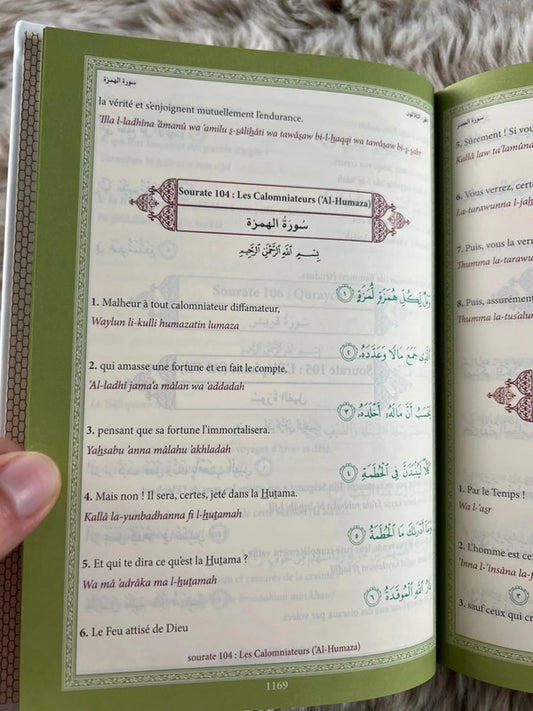 سورة الهمزة
الجزء الثلاثون
la vérité et s'enjoignent mutuellement l'endurance.
'Illa l-ladhîna 'âmanû wa 'amilu ṣ-ṣâliḥâti wa tawâṣaw bi-l-ḥaqqi wa tawâṣaw bi-ṣ-ṣabr
Sourate 104 : Les Calomniateurs ('Al-Humaza)
سُورَةُ الهمزة
بِسْمِ ٱللَّهِ ٱلرَّحْمَٰنِ ٱلرَّحِيمِ
وَيْلٌ لِّكُلِّ هُمَزَةٍ لُّمَزَةٍ ١
1. Malheur à tout calomniateur diffamateur,
Waylun li-kulli humazatin lumaza
ٱلَّذِى جَمَعَ مَالًا وَعَدَّدَهُۥ ٢
2. qui amasse une fortune et en fait le compte,
'Al-ladhî jama'a mâlan wa 'addadah
يَحْسَبُ أَنَّ مَالَهُۥٓ أَخْلَدَهُۥ ٣
3. pensant que sa fortune l'immortalisera.
Yaḥsabu 'anna mâlahu 'akhladah
كَلَّا لَيُنۢبَذَنَّ فِى ٱلْحُطَمَةِ ٤
4. Mais non ! Il sera, certes, jeté dans la Ḥuṭama.
Kallâ la-yunbadhanna fi l-ḥuṭamah
وَمَآ أَدْرَىٰكَ مَا ٱلْحُطَمَةُ ٥
5. Et qui te dira ce qu'est la Ḥuṭama ?
Wa mâ 'adrâka ma l-ḥuṭamah
نَارُ ٱللَّهِ ٱلْمُوقَدَةُ ٦
6. Le Feu attisé de Dieu
sourate 104 : Les Calomniateurs ('Al-Humaza)
1169
سورة العصر
5. Sûrement ! Si vou
Kallâ law ta'lamûna
6. Vous verrez, certe
La-tarawunna l-jaḥ
7. Puis, vous la verr
Thumma la-tarawu
8. Puis, assurément
Thumma la-tus'alu
1. Par le Temps !
Wa l-'aṣr
2. L'homme est ce
'Inna l-'insâna la-f
٣
3. sauf ceux qui cr